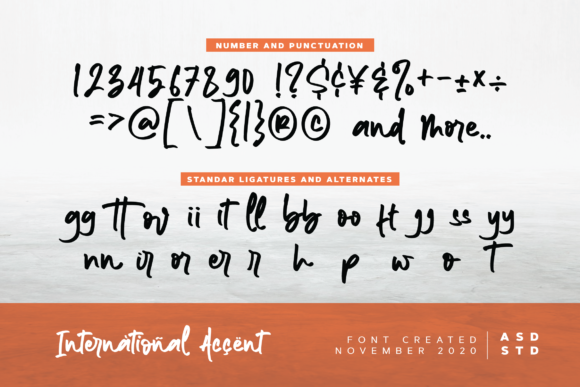 NUMBER AND PUNCTUATION
1234567890 !?$¢¥&%+-±×÷
=>@[\]{|}®© and more..
STANDAR LIGATURES AND ALTERNATES
gg tt ov ii it ll bb oo ft gg ss yy
nn ir or er r h p w o t
Internàtioñal Aççënt
FONT CREATED
NOVEMBER 2020
ASD
STD